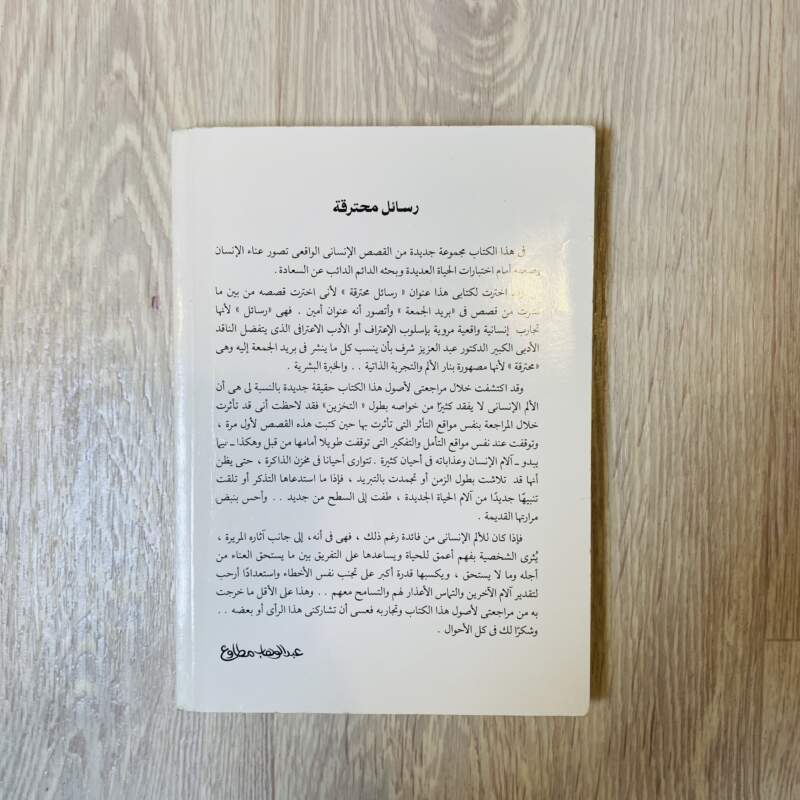 رسائل محترقة
فى هذا الكتاب مجموعة جديدة من القصص الإنسانى الواقعى تصور عناء الإنسان
أمام اختبارات الحياة العديدة وبحثه الدائم الدائب عن السعادة .
اخترت لكتابى هذا عنوان « رسائل محترقة » لأنى اخترت قصصه من بين ما
من قصص فى «بريد الجمعة » وأتصور أنه عنوان أمين . فهى «رسائل » لأنها
تجارب إنسانية واقعية مروية بإسلوب الإعتراف أو الأدب الاعترافى الذى يتفضل الناقد
الأدبى الكبير الدكتور عبد العزيز شرف بأن ينسب كل ما ينشر فى بريد الجمعة إليه وهى
«محترقة » لأنها مصهورة بنار الألم والتجربة الذاتية . . والخبرة البشرية .
وقد اكتشفت خلال مراجعتى لأصول هذا الكتاب حقيقة جديدة بالنسبة لى هى أن
الألم الإنسانى لا يفقد كثيرًا من خواصه بطول « التخزين» فقد لاحظت أنى قد تأثرت
خلال المراجعة بنفس مواقع التأثر التى تأثرت بها حين كتبت هذه القصص لأول مرة ،
وتوقفت عند نفس مواقع التأمل والتفكير التى توقفت طويلا أمامها من قبل وهكذا ـ فيما
يبدو ـ آلام الإنسان وعذاباته فى أحيان كثيرة . تتوارى أحيانا فى مخزن الذاكرة ، حتى يظن
أنها قد تلاشت بطول الزمن أو تجمدت بالتبريد ، فإذا ما استدعاها التذكر أو تلقت
تنبيهًا جديدًا من آلام الحياة الجديدة ، طفت إلى السطح من جديد . . وأحس بنبض
مرارتها القديمة .
فإذا كان للألم الإنسانى من فائدة رغم ذلك ، فهى فى أنه، إلى جانب آثاره المريرة ،
يُثرى الشخصية بفهم أعمق للحياة ويساعدها على التفريق بين ما يستحق العناء من
أجله وما لا يستحق ، ويكسبها قدرة أكبر على تجنب نفس الأخطاء واستعدادًا أرحب
لتقدير آلام الآخرين والتماس الأعذار لهم والتسامح معهم . . وهذا على الأقل ما خرجت
به من مراجعتى لأصول هذا الكتاب وتجاربه فعسى أن تشاركنى هذا الرأى أو بعضه . .
وشكرًا لك فى كل الأحوال .
عبدالوهاب مطاوع